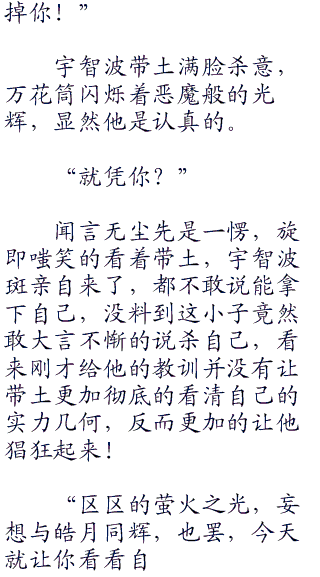 掉你！”
宇智波带土满脸杀意，
万花筒闪烁着恶魔般的光
辉，显然他是认真的。
“就凭你？”
闻言无尘先是一愣，旋
即嗤笑的看着带土，宇智波
斑亲自来了，都不敢说能拿
下自己，没料到这小子竟然
敢大言不惭的说杀自己，看
来刚才给他的教训并没有让
带土更加彻底的看清自己的
实力几何，反而更加的让他
猖狂起来！
“区区的萤火之光，妄
想与皓月同辉，也罢，今天
就让你看看自